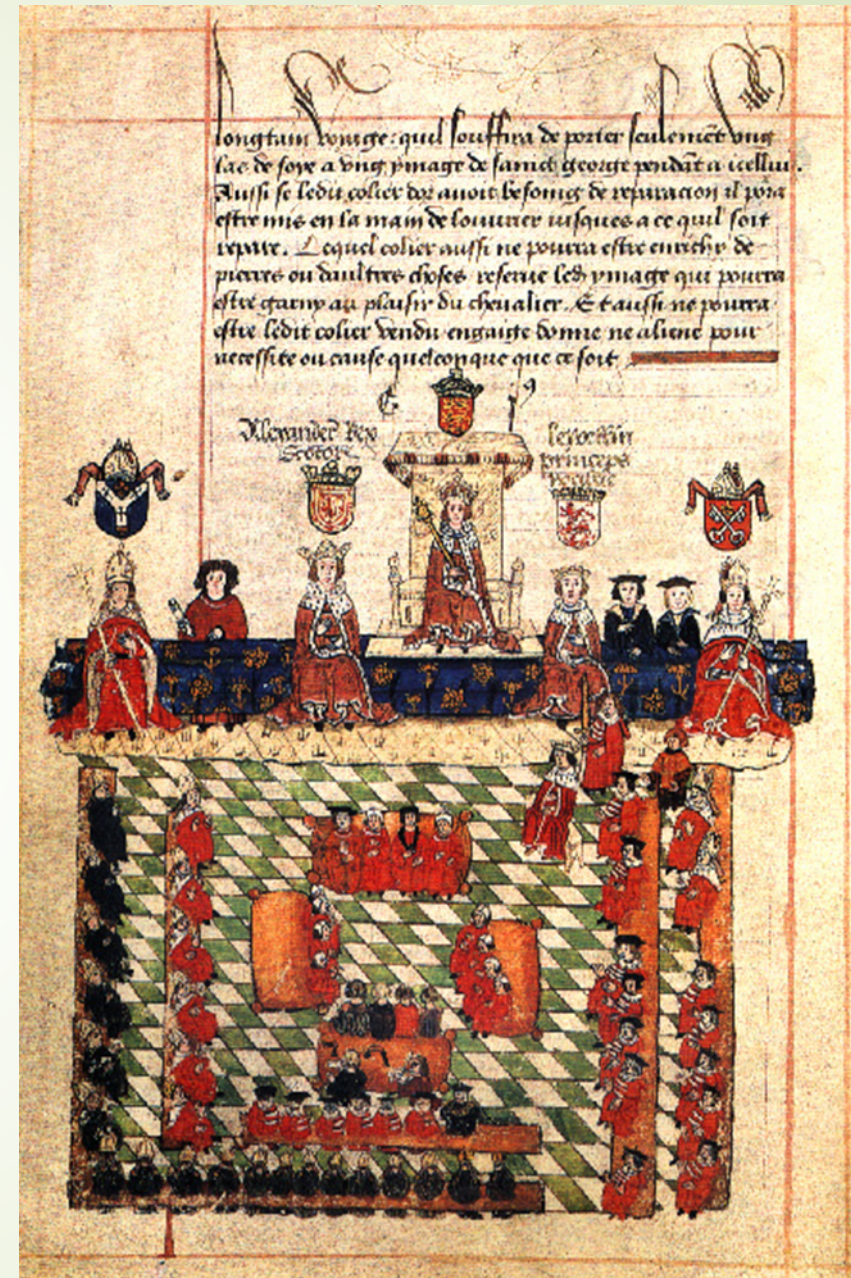 longtain voiaige: quil souffira de porter seulemēt ung
las de soye a ung ymage de sainct george pendāt a icellui.
Aussi se ledit colier dor auoit besoing de reparacion il pora
estre mis en la main de louurier iusques a ce quil soit
repare. Lequel colier aussi ne pourra estre enrichy de
pierres ou daultres choses reserue led ymage qui pourra
estre garny au plaisir du cheualier. Et aussi ne pourra
estre ledit colier vendu engaige donne ne aliene pour
necessite ou cause quelconque que ce soit
Alexander Rex
Scotorȝ
princeps